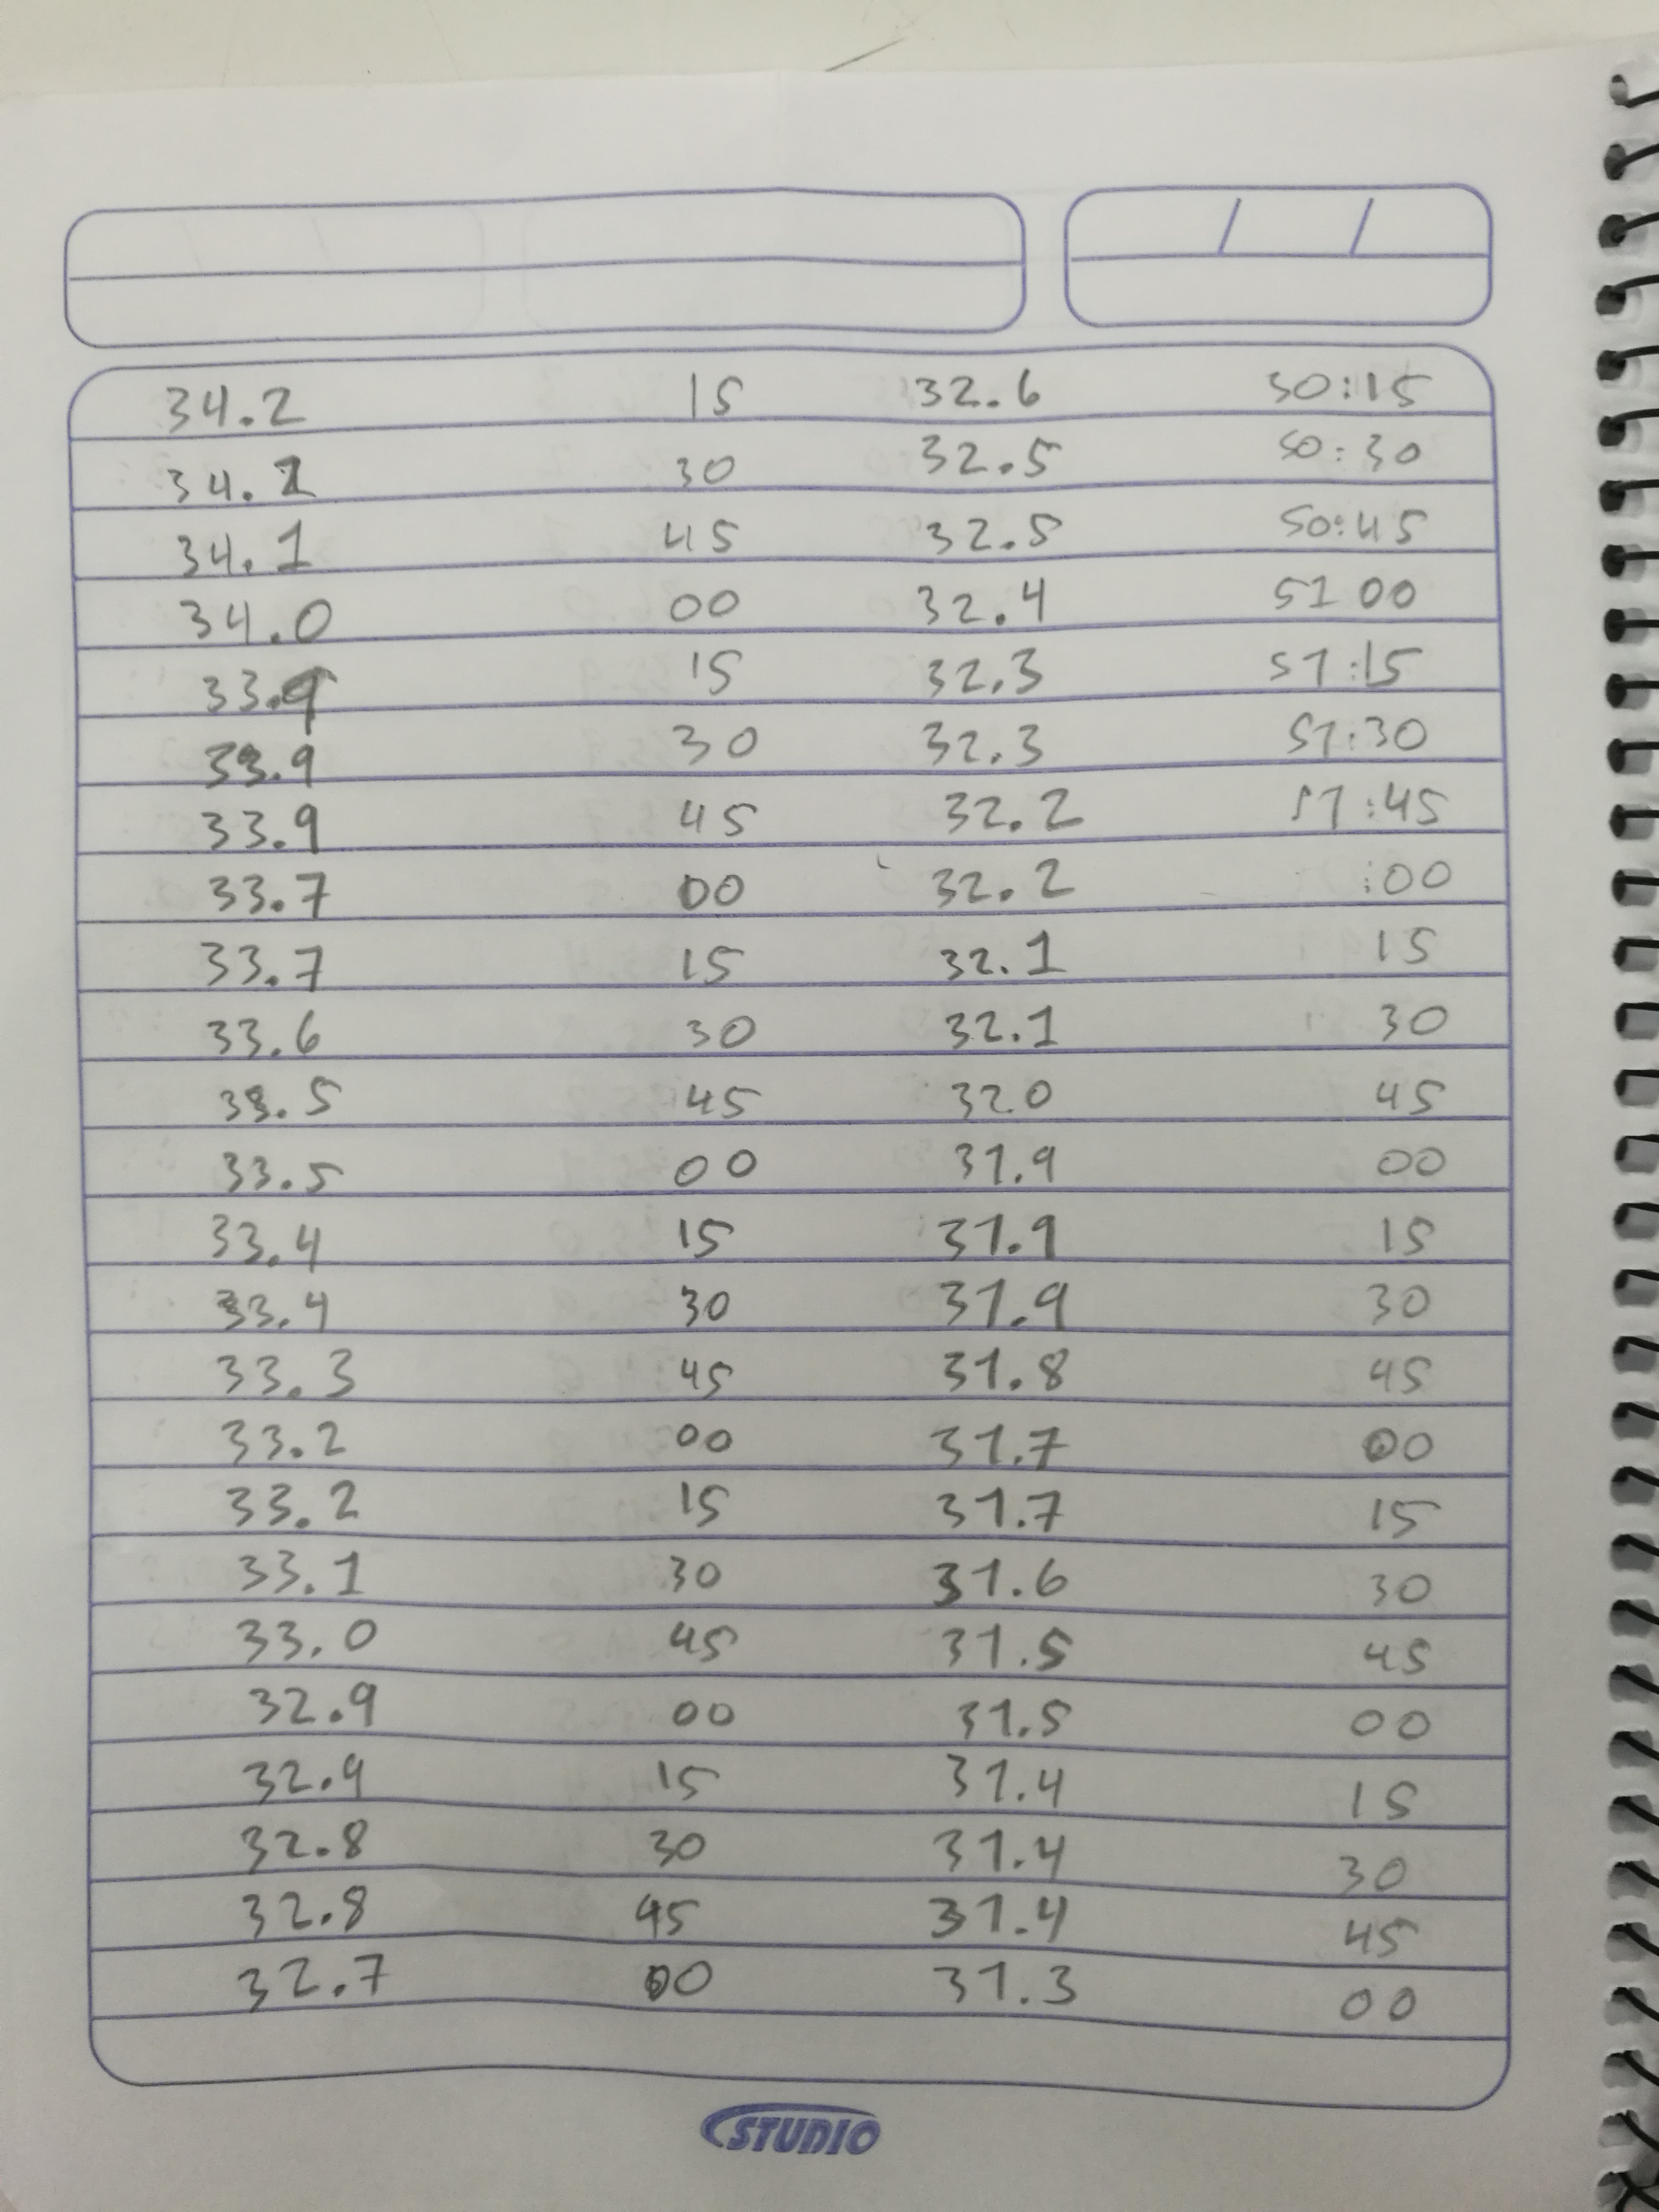 34.2 15 32.6 50:15
34.1 30 32.5 50:30
34.1 45 32.5 50:45
34.0 00 32.4 51 00
33.9 15 32.3 51:15
33.9 30 32.3 51:30
33.9 45 32.2 51:45
33.7 00 32.2 :00
33.7 15 32.1 15
33.6 30 32.1 30
33.5 45 32.0 45
33.5 00 31.9 00
33.4 15 31.9 15
33.4 30 31.9 30
33.3 45 31.8 45
33.2 00 31.7 00
33.2 15 31.7 15
33.1 30 31.6 30
33.0 45 31.5 45
32.9 00 31.5 00
32.9 15 31.4 15
32.8 30 31.4 30
32.8 45 31.4 45
32.7 00 31.3 00
STUDIO